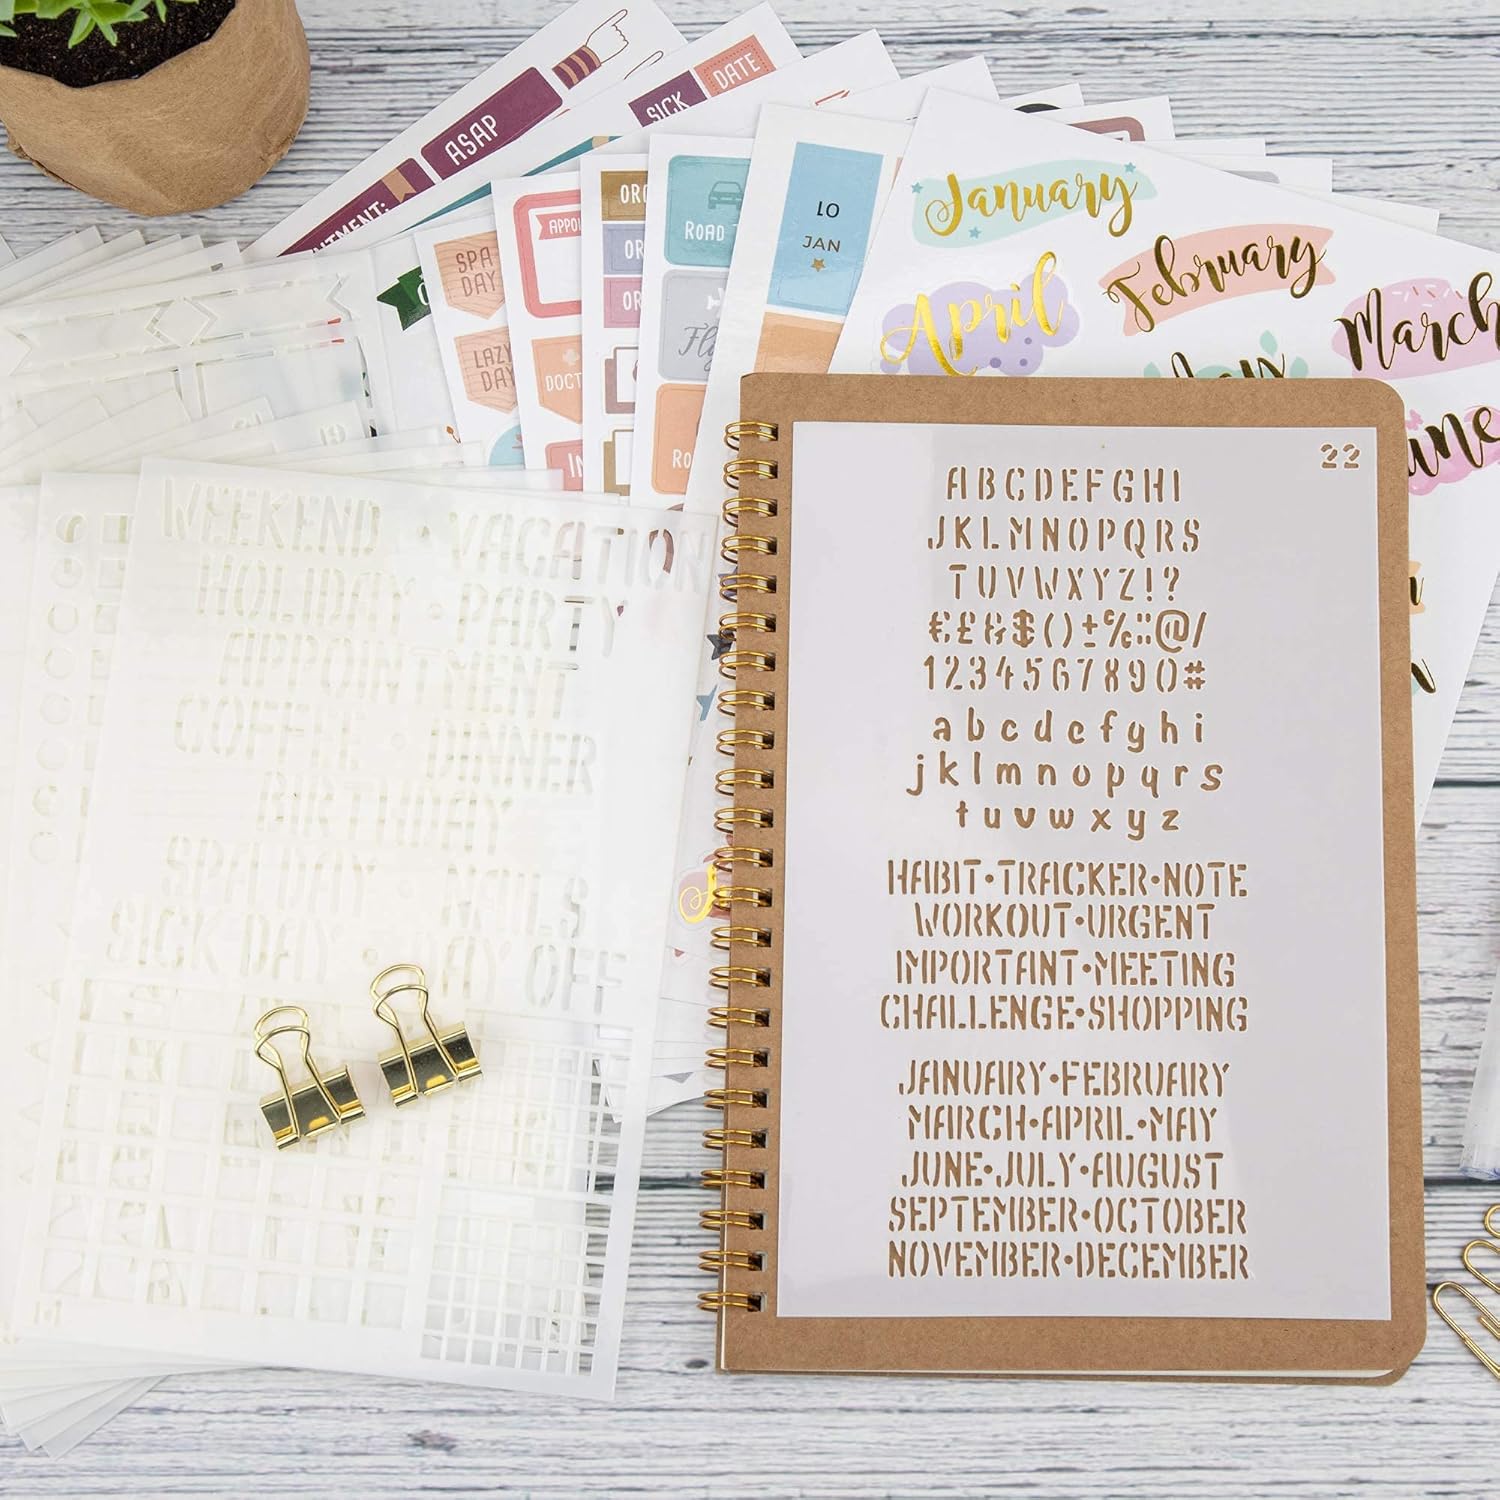 ASAP
SICK
DATE
SPA
DAY
LAZY
DAY
ROAD
LO
JAN
January
February
April
March
22
ABCDEFGHI
JKLMNOPQRS
TUVWXYZ!?
€£&$()±%::@/
1234567890#
abcdefghi
jklmnopqrs
tuvwxyz
HABIT•TRACKER•NOTE
WORKOUT•URGENT
IMPORTANT•MEETING
CHALLENGE•SHOPPING
JANUARY•FEBRUARY
MARCH•APRIL•MAY
JUNE•JULY•AUGUST
SEPTEMBER•OCTOBER
NOVEMBER•DECEMBER
WEEKEND • VACATION
HOLIDAY • PARTY
APPOINTMENT
COFFEE • DINNER
BIRTHDAY
SPA DAY • NAILS
SICK DAY • DAY OFF